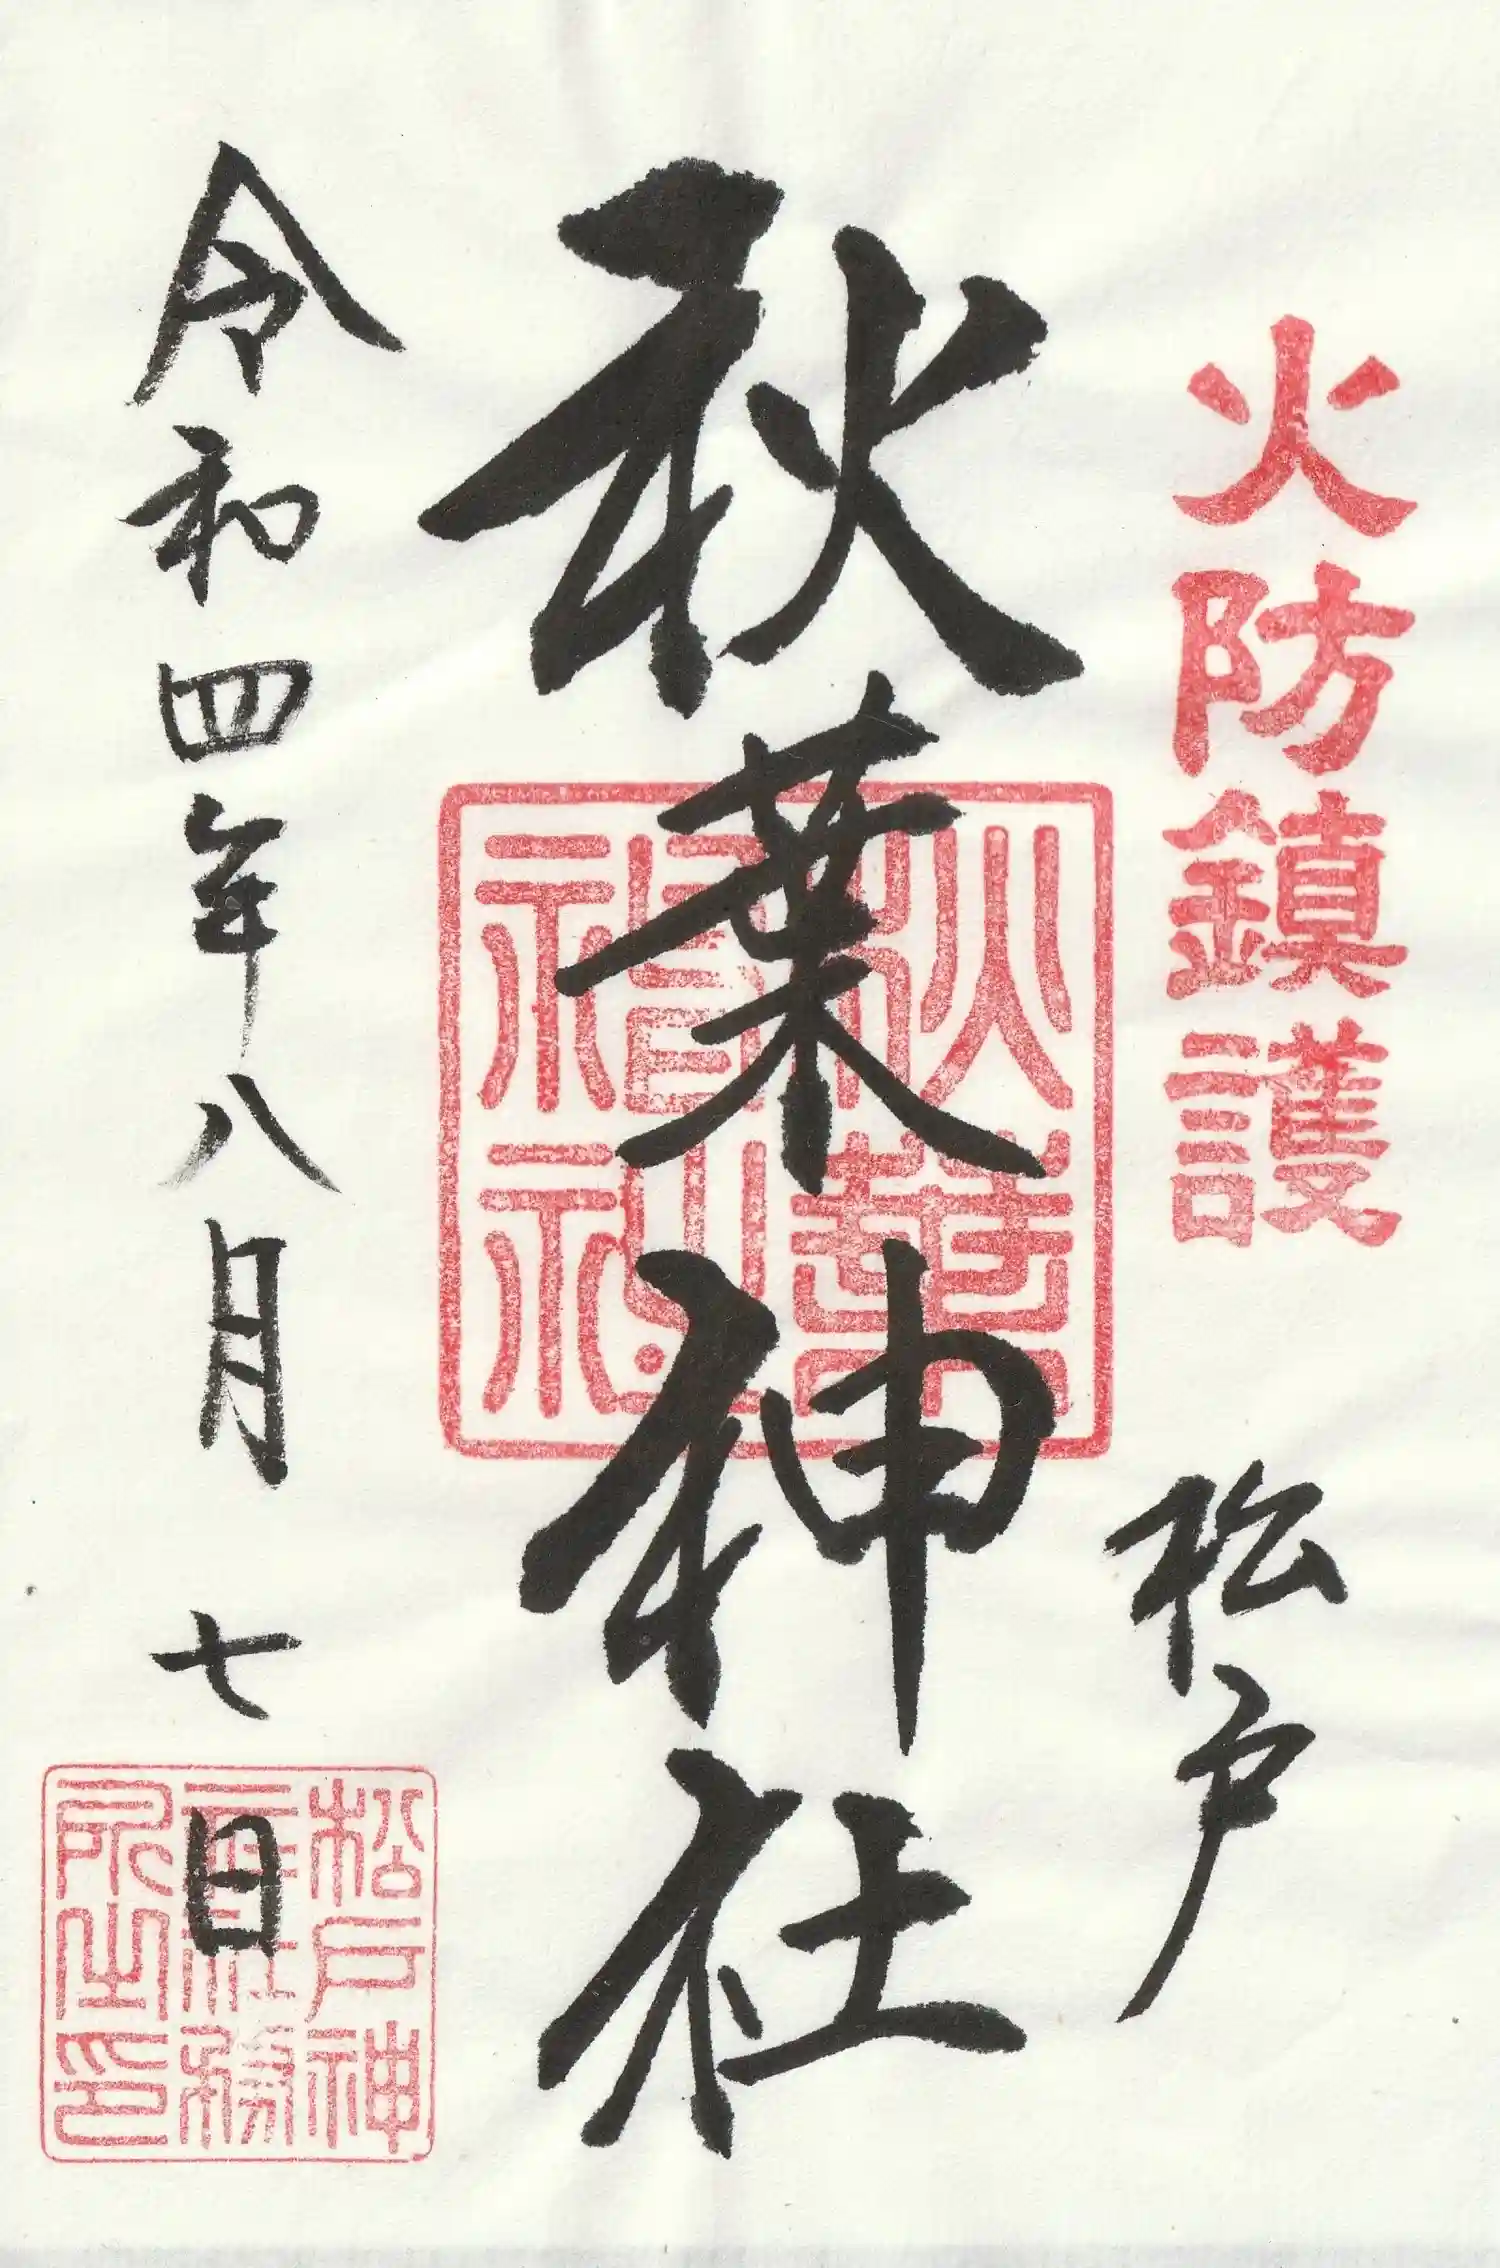 火防鎮護
松戸
秋葉神社
令和四年八月七日
松戸神
社務
所之印